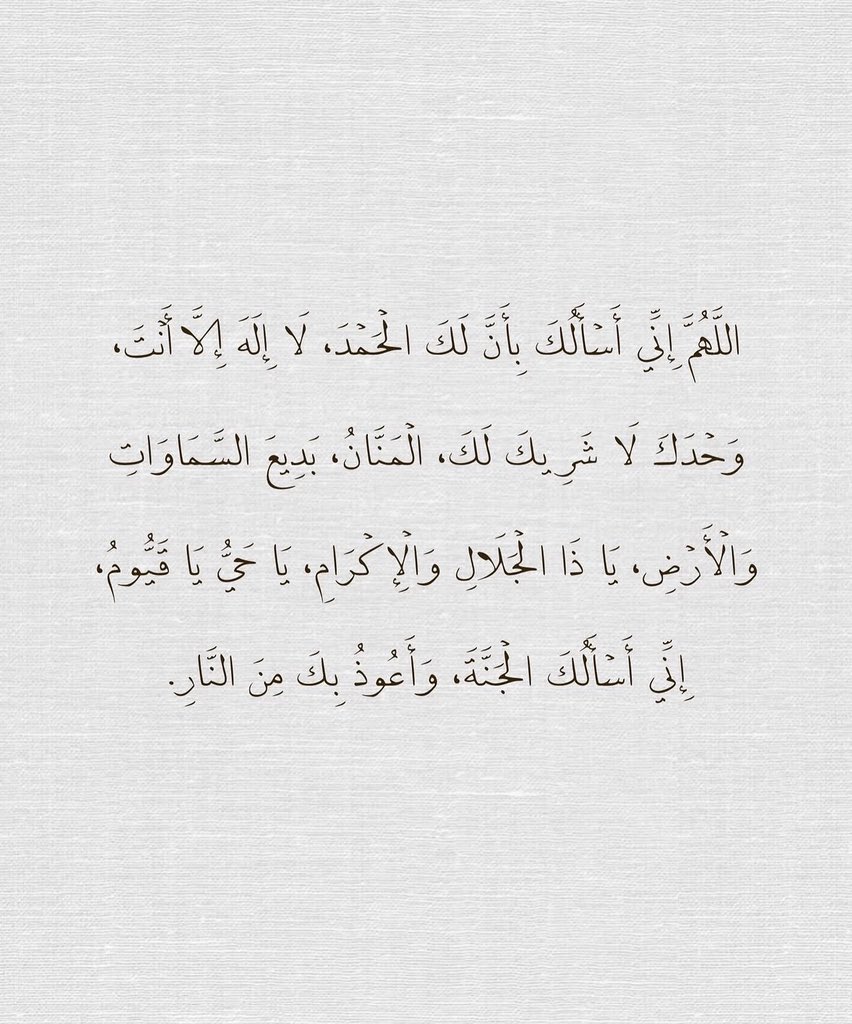 اللَّهُمَّ إِنِّي أَسْأَلُكَ بِأَنَّ لَكَ الْحَمْدَ، لَا إِلَهَ إِلَّا أَنْتَ،
وَحْدَكَ لَا شَرِيكَ لَكَ، الْمَنَّانُ، بَدِيعَ السَّمَاوَاتِ
وَالْأَرْضِ، يَا ذَا الْجَلَالِ وَالْإِكْرَامِ، يَا حَيُّ يَا قَيُّومُ،
إِنِّي أَسْأَلُكَ الْجَنَّةَ، وَأَعُوذُ بِكَ مِنَ النَّارِ.